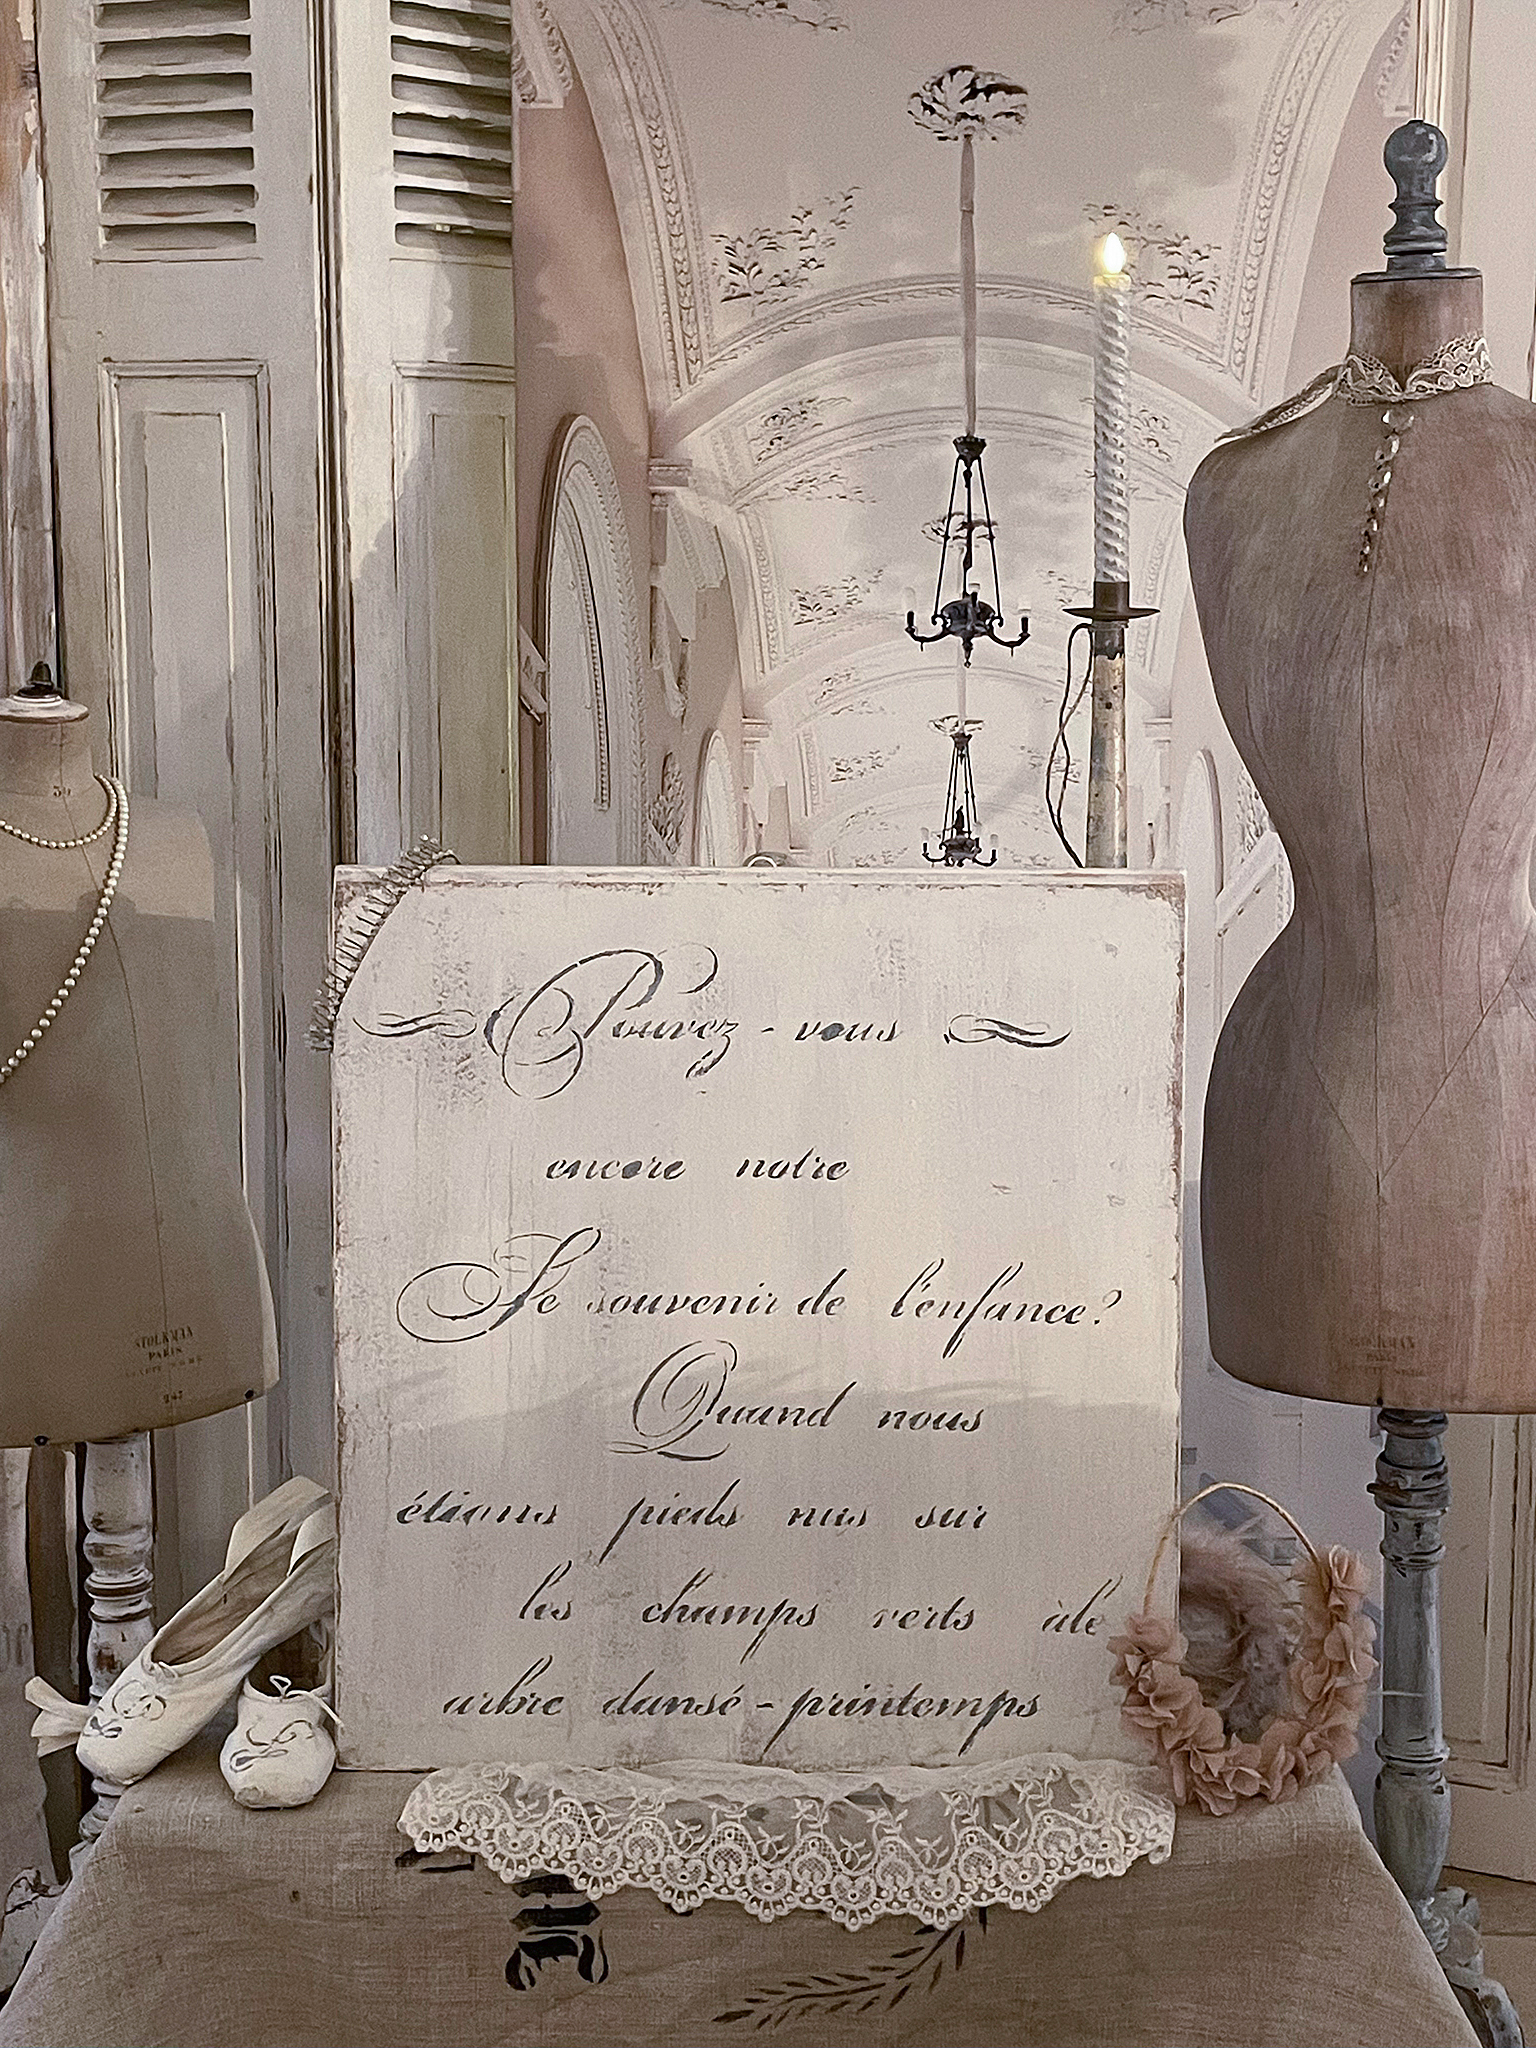 Pouvez - vous
encore notre
Se souvenir de l'enfance?
Quand nous
étions pieds nus sur
les champs verts àlé
arbre dansé - printemps
STOCKMAN
PARIS